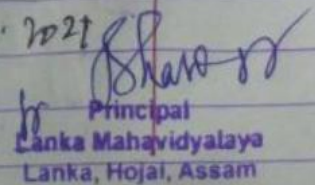 2021
Principal
Lanka Mahavidyalaya
Lanka, Hojai, Assam